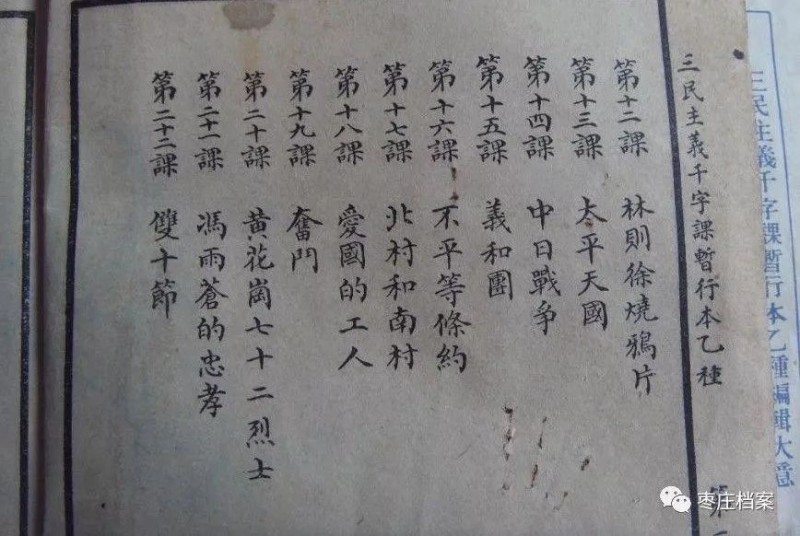 三民主義千字課暫行本乙種編輯大意
三民主義千字課暫行本乙種 第一
第十二課 林則徐燒鴉片
第十三課 太平天國
第十四課 中日戰爭
第十五課 義和團
第十六課 不平等條約
第十七課 北村和南村
第十八課 愛國的工人
第十九課 奮鬥
第二十課 黃花崗七十二烈士
第二十一課 馮雨蒼的忠孝
第二十二課 雙十節
枣庄档案